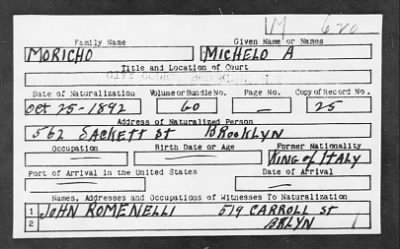 M 620
Family Name Given Name or Names
MORICHO MICHELO A
Title and Location of Court
CITY COURT
Date of Naturalization Volume or Bundle No. Page No. Copy of Record No.
Oct 25-1892 60 — 25
Address of Naturalized Person
562 SACKETT ST BROOKLYN
Occupation Birth Date or Age Former Nationality
— — KING of ITALY
Port of Arrival in the United States Date of Arrival
— —
Names, Addresses and Occupations of Witnesses To Naturalization
1 JOHN ROMENELLI 519 CARROLL St
2 BKLYN